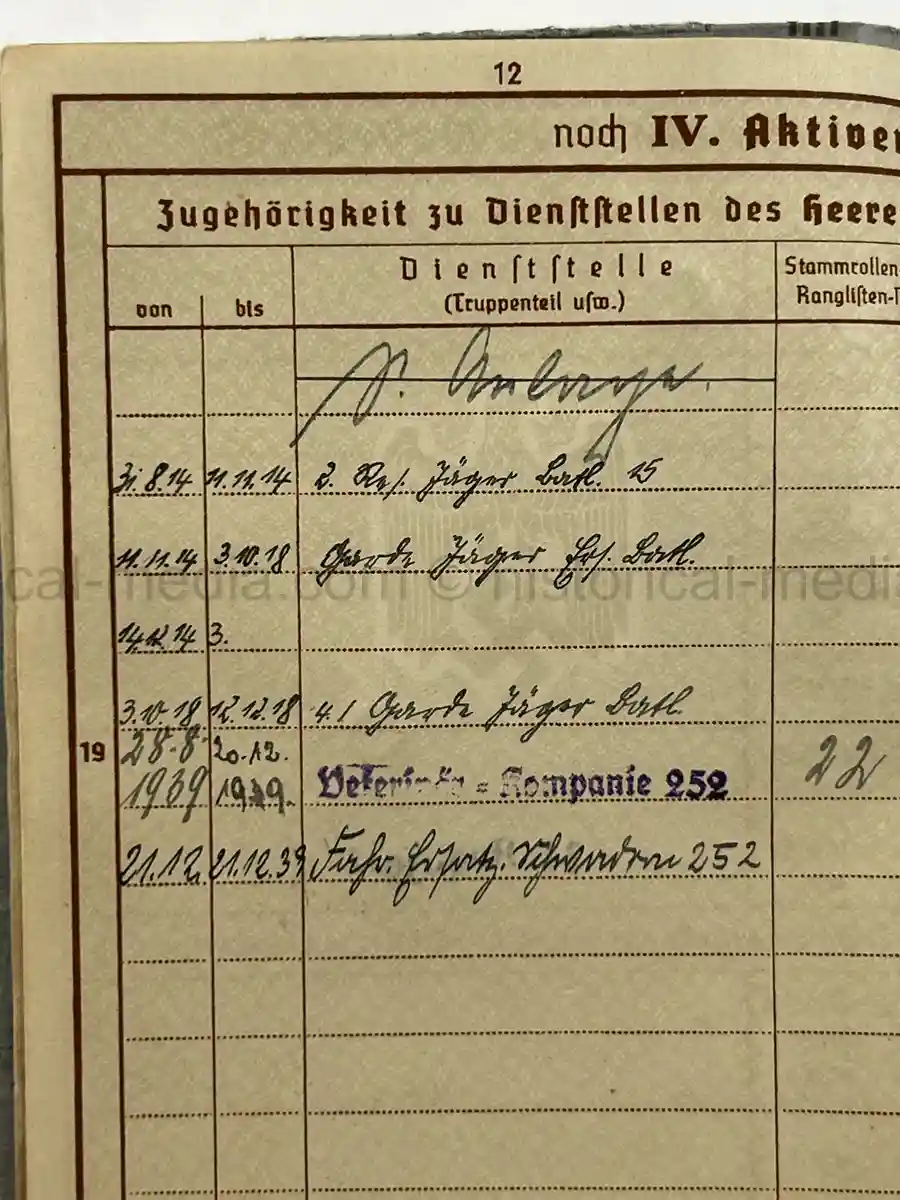 12
noch IV. Aktiver
Zugehörigkeit zu Dienststellen des Heere
von bis Dienststelle (Truppenteil usw.) Stammrollen- Ranglisten-
S. Anlage.
31.8.14 11.11.14 2. Res. Jäger Batl. 15
11.11.14 3.10.18 Garde Jäger Ers. Batl.
14.12.14 3.
3.10.18 12.12.18 4./ Garde Jäger Batl.
19 28.8. 1939 20.12. 1939. Veterinär-Kompanie 252 22
21.12. 21.12.39 Fahr. Ersatz. Schwadron 252
cal-media.com © historical-media